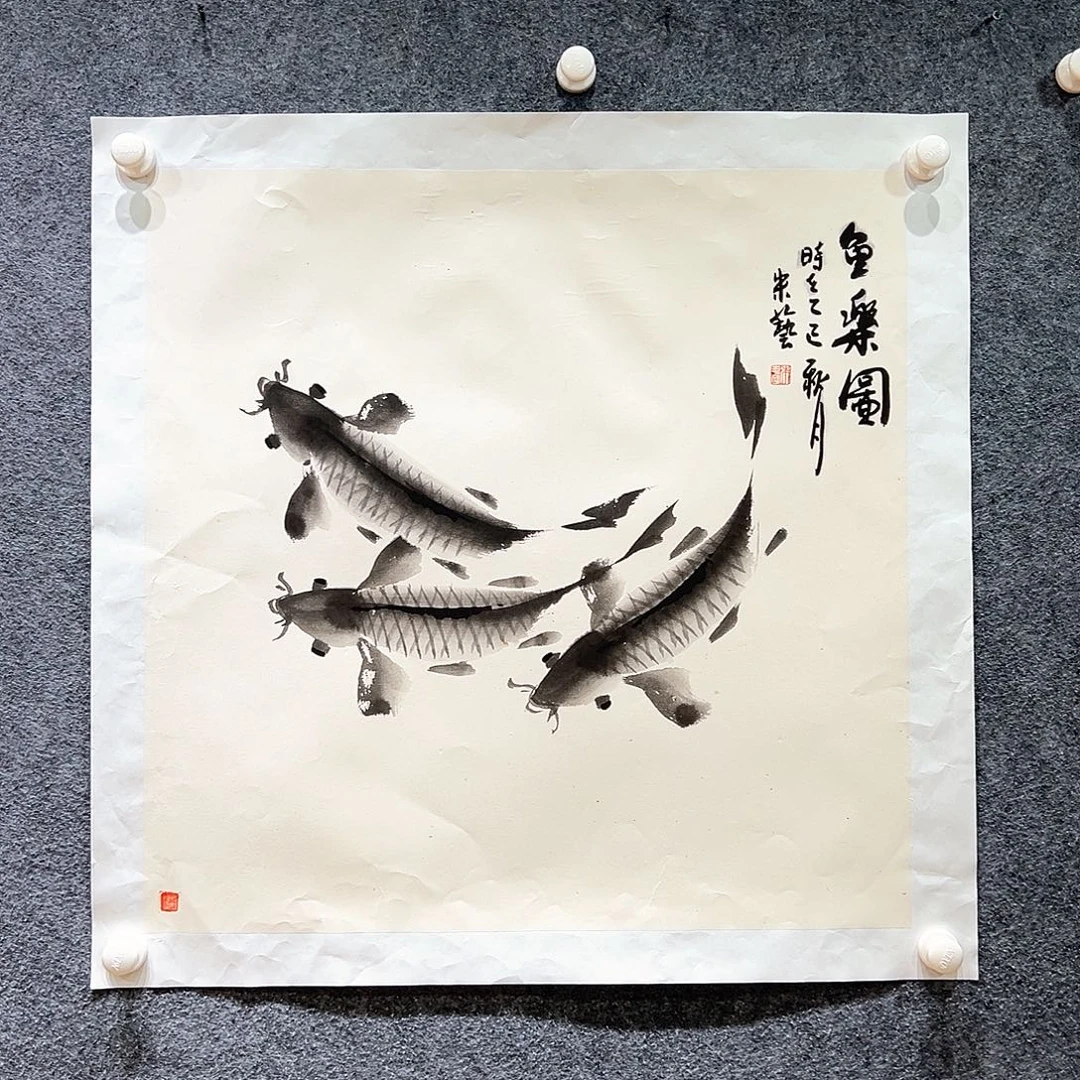 魚樂圖
時在乙巳秋月
宋藝